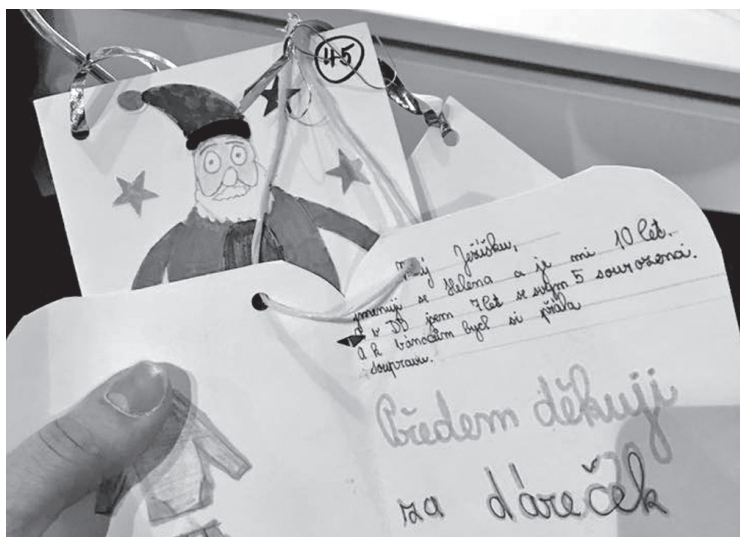 45
Ježíšku,
jmenuji se Helena a je mi 10 let.
v DD jsem 7 let se svým 5 sourozenci.
a k vánocům bych si přála
soupravu.
Předem děkuji
za ďáreček